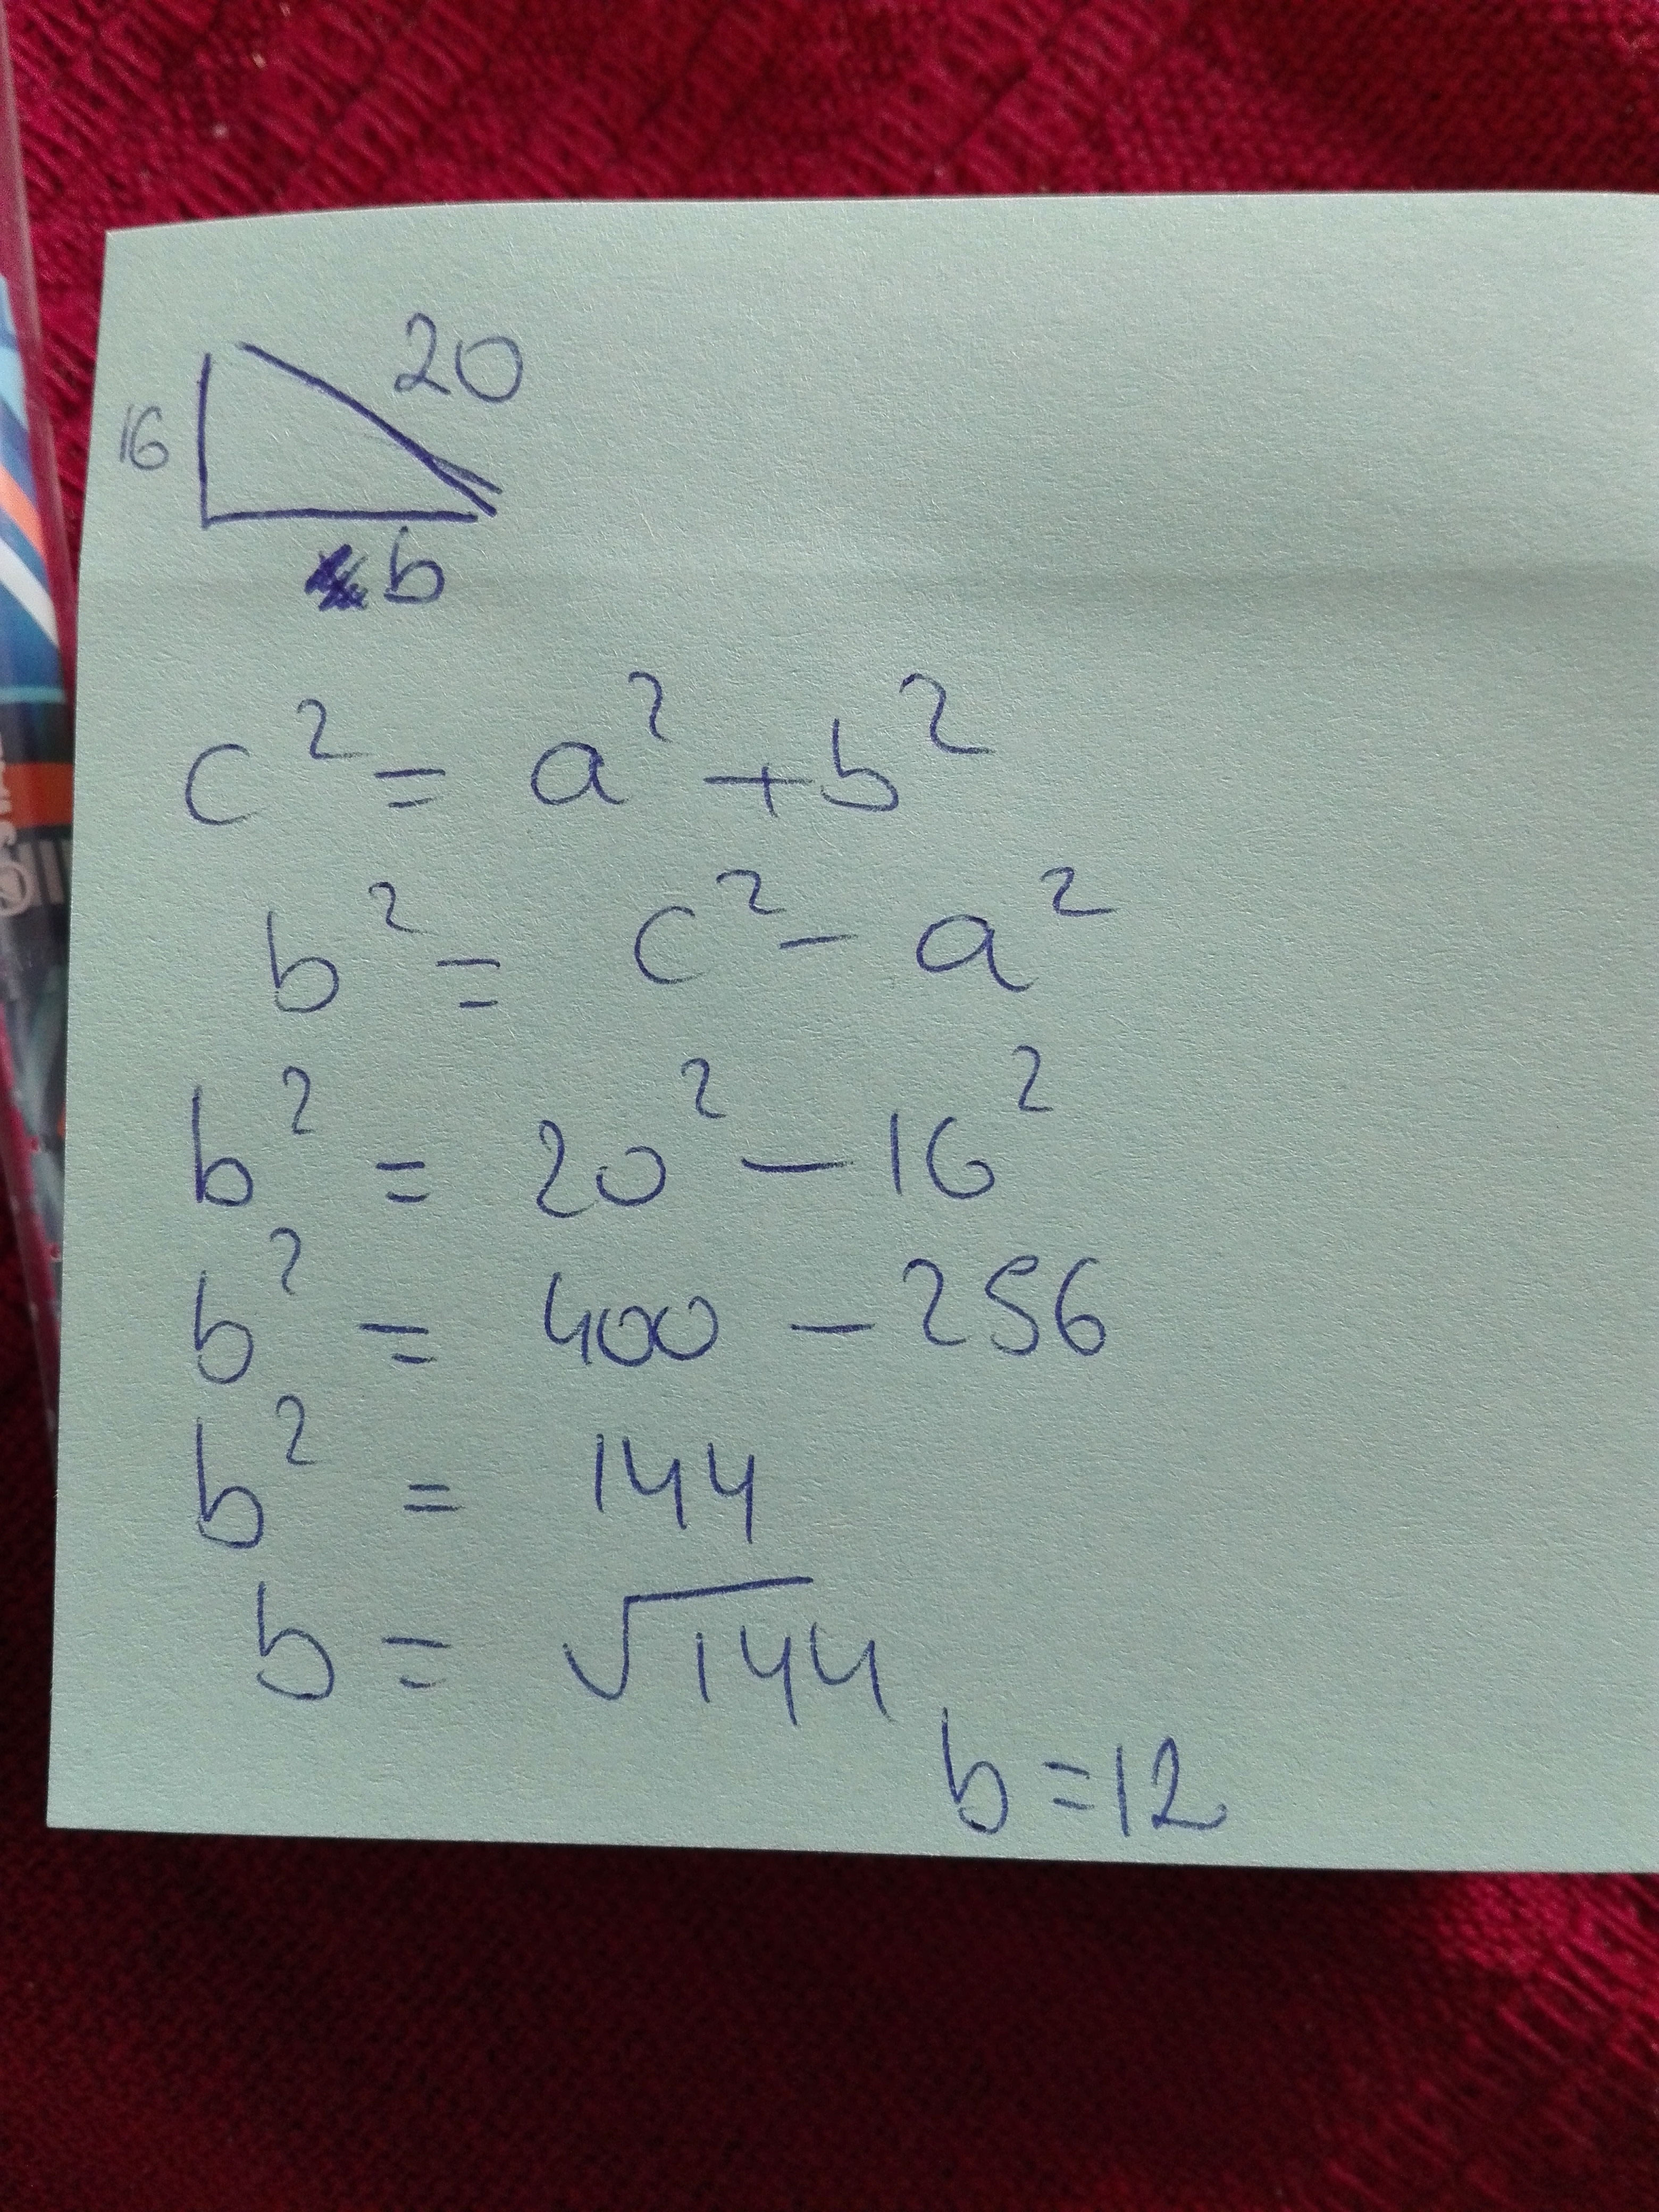 20
16
b
c² = a² + b²
b² = c² - a²
b² = 20² - 16²
b² = 400 - 256
b² = 144
b = √144
b = 12